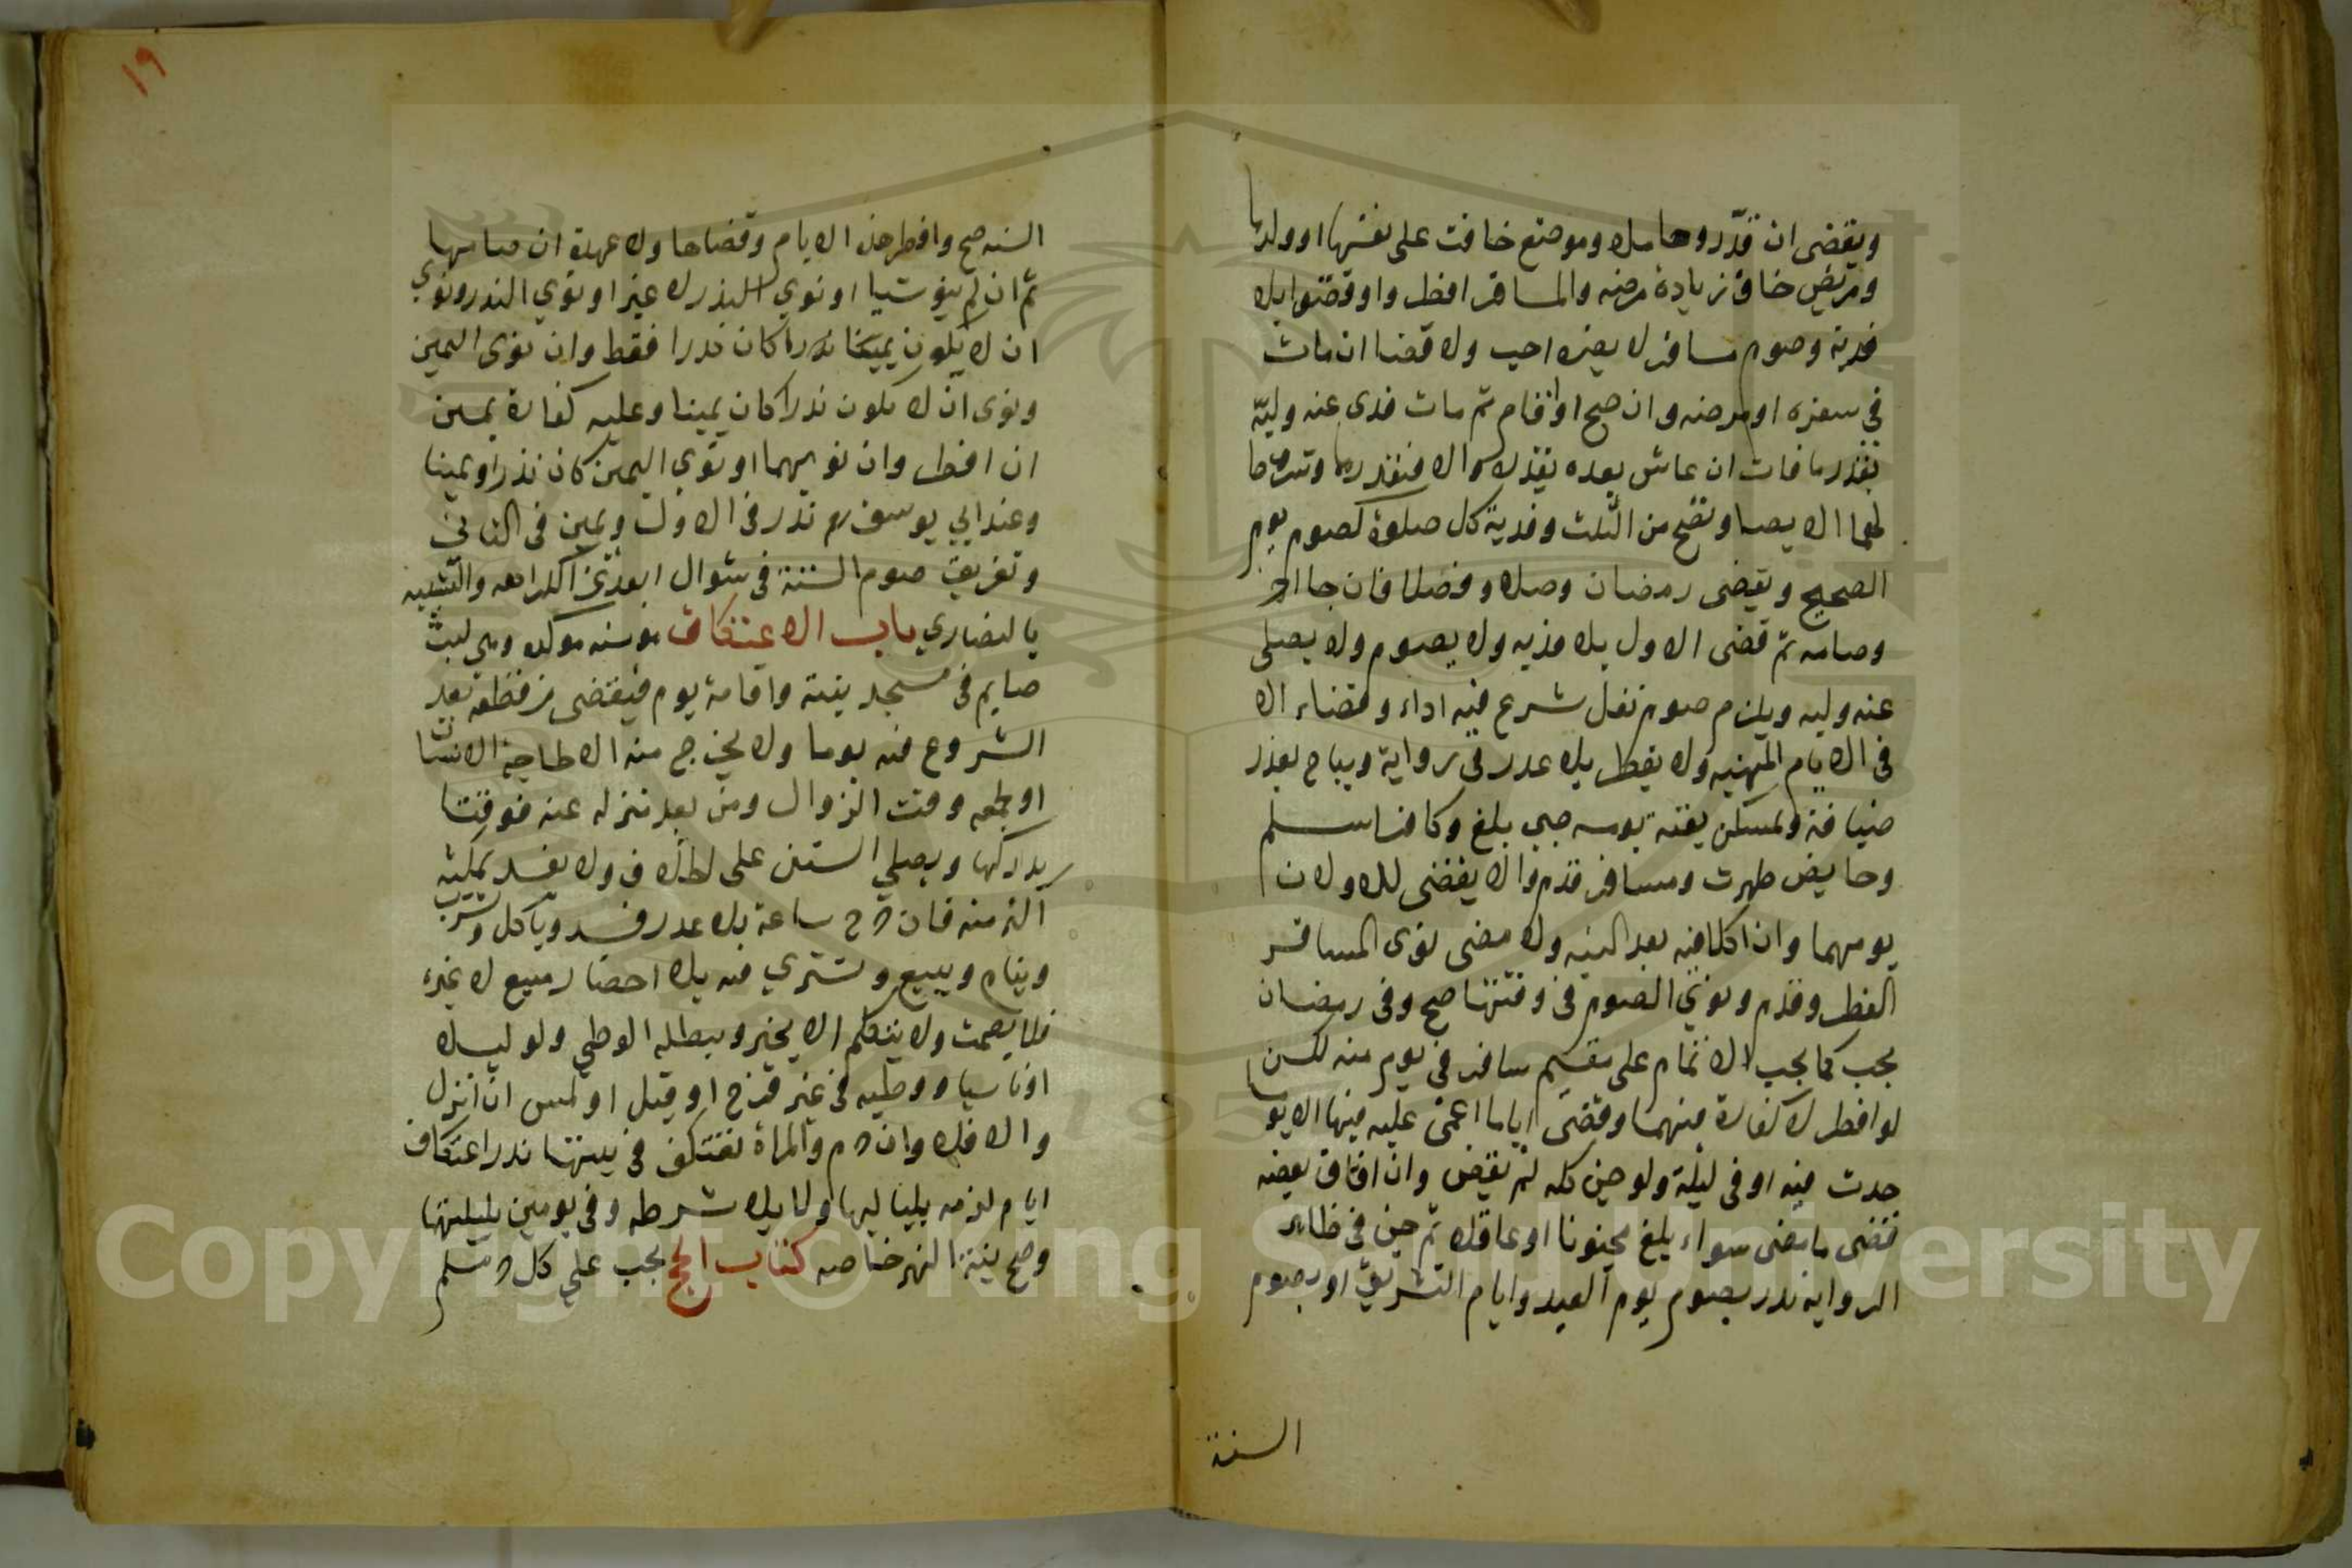 ويقضى ان قدّر وحامل ومرضع خافت على نفسها او ولدها
ومريض خاف زيادة مرضه والمسافر افطروا وقضوا بلا
فدية وصوم مسافر لا يضره احب ولا قضا ان مات
في سفره او مرضه وان صح او اقام ثم مات فدى عنه وليّه
بقدر ما فات ان عاش بعده بقدره والا فبقدرهما وشرط
لهما الايصا وتصح من الثلث وفدية كل صلوة كصوم يوم
الصحيح ويقضى رمضان وصلا وفصلا فان جا اخر
وصامه ثم قضى الاول بلا فديه ولا يصوم ولا يصلى
عنه وليه ويلزم صوم نفل شرع فيه اداء وقضاء الا
فى الايام المنهيه ولا يفطر بلا عذر فى رواية ويباح بعذر
ضيافة ويمسك بقية يومه صبي بلغ وكافر اسلم
وحايض طهرت ومسافر قدم ولا يقضى للاولان
يومهما وان اكلا فيه بعد النيه ولا مضى نوى المسافر
الفطر وقدم ونوي الصوم فى وقتها صح وفى رمضان
يجب كما يجب الاتمام على مقيم سافر فى يوم منه لكن
لو افطر لا كفارة فيهما وقضى اياما اغمى عليه فيها الا يوما
حدث فيه او فى ليلة ولو جن كله لم يقض وان افاق بعضه
قضى ما مضى سواء بلغ مجنونا او عاقلا ثم جن فى ظاهر
الروايه نذر بصوم يوم العيد وايام التشريق او بصوم
السنة
١٩
السنه صح وافطر هذه الايام وقضاها ولا عهدة ان صامها
ثم ان لم ينو شيا او نوي النذر لا غير او نوي النذر ونوي
ان لا يكون يمينا كان نذرا فقط وان نوى اليمين
ونوى ان لا يكون نذرا كان يمينا وعليه كفارة يمين
ان افطر وان نويهما او نوي اليمين كان نذرا ويمينا
وعند ابي يوسف رح نذر فى الاول ويمين فى الثانى
وتفريق صوم الستة فى شوال ابعد عن الكراهه والتشبيه
بالنصاري باب الاعتكاف هو سنه موكده وهى لبث
صايم فى مسجد بنية واقامة يوم فيقضى من قطعه بعد
الشروع فيه يوما ولا يخرج منه الا لحاجة الانسان
او جمعه وقت الزوال ومن بعد منزله عنه فوقتا
يدركها ويصلي السنن على الخلاف ولا يفسد بمكثه
اكثر منه فان خرج ساعة بلا عذر فسد وياكل وشرب
وينام ويبيع ويشتري فيه بلا احضار مبيع لا غيره
فلا يصمت ولا يتكلم الا بخير ويبطله الوطي ولو ليلا
او ناسيا ووطيه فى غير فرج او قبل او لمس ان انزل
والا فلا وان حرم والمراة تعتكف فى بيتها نذر اعتكاف
ايام لزمه بلياليها ولا بلا شرطه وفى يومين بليلتهما
وصح نية النهر خاصه كتاب الحج يجب علي كل حر مسلم